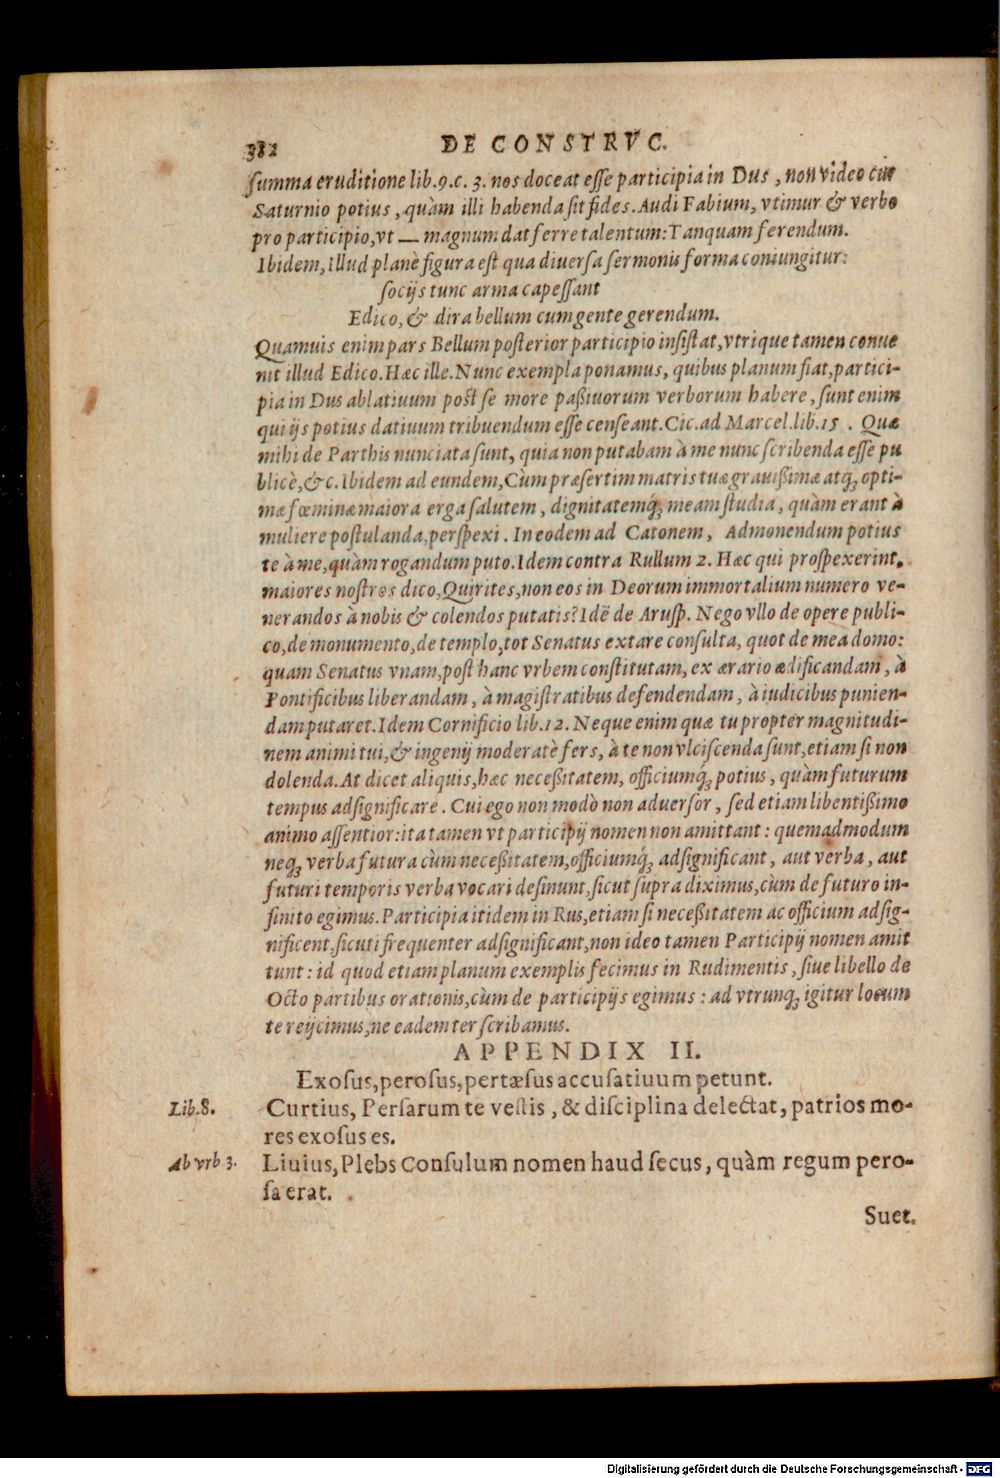 382 DE CONSTRVC.
ſumma eruditione lib.9.c.3. nos doceat eſſe participia in Dus, non video cur
Saturnio potius, quàm illi habenda ſit fides. Audi Fabium, vtimur & verbo
pro participio, vt — magnum dat ferre talentum: Tanquam ferendum.
Ibidem, Illud planè figura eſt qua diuerſa ſermonis forma coniungitur:
ſocijs tunc arma capeſſant
Edico, & dira bellum cum gente gerendum.
Quamuis enim pars Bellum poſterior participio inſiſtat, vtrique tamen conue
nit illud Edico. Hæc ille. Nunc exempla ponamus, quibus planum fiat, partici-
pia in Dus ablatiuum poſt ſe more paßiuorum verborum habere, ſunt enim
qui ijs potius datiuum tribuendum eſſe cenſeant. Cic. ad Marcel. lib.15. Quæ
mihi de Parthis nunciata ſunt, quia non putabam à me nunc ſcribenda eſſe pu
blicè, &c. Ibidem ad eundem, Cùm præſertim matris tuæ grauißimæ atq́; opti-
mæ fœminæ maiora erga ſalutem, dignitatemq́; meam ſtudia, quàm erant à
muliere poſtulanda, perſpexi. In eodem ad Catonem, Admonendum potius
te à me, quàm rogandum puto. Idem contra Rullum 2. Hæc qui proſpexerint,
maiores noſtros dico, Quirites, non eos in Deorum immortalium numero ve-
nerandos à nobis & colendos putatis? Idẽ de Aruſp. Nego vllo de opere publi-
co, de monumento, de templo, tot Senatus extare conſulta, quot de mea domo:
quam Senatus vnam, poſt hanc vrbem conſtitutam, ex ærario ædificandam, à
Pontificibus liberandam, à magiſtratibus defendendam, à iudicibus punien-
dam putaret. Idem Cornificio lib.12. Neque enim quæ tu propter magnitudi-
nem animi tui, & ingenij moderatè fers, à te non vlciſcenda ſunt, etiam ſi non
dolenda. At dicet aliquis, hæc neceßitatem, officiumq́; potius, quàm futurum
tempus adſignificare. Cui ego non modò non aduerſor, ſed etiam libentißimo
animo aſſentior: ita tamen vt participij nomen non amittant: quemadmodum
neq; verba futura cùm neceßitatem, officiumq́; adſignificant, aut verba, aut
futuri temporis verba vocari deſinunt, ſicut ſupra diximus, cùm de futuro in-
finito egimus. Participia itidem in Rus, etiam ſi neceßitatem ac officium adſig-
nificent, ſicuti frequenter adſignificant, non ideo tamen Participij nomen amit
tunt: id quod etiam planum exemplis fecimus in Rudimentis, ſiue libello de
Octo partibus orationis, cùm de participijs egimus: ad vtrunq; igitur locum
te reijcimus, ne eadem ter ſcribamus.
APPENDIX II.
Exoſus, peroſus, pertæſus accuſatiuum petunt.
Lib.8. Curtius, Perſarum te veſtis, & diſciplina delectat, patrios mo-
res exoſus es.
Ab vrb 3. Liuius, Plebs Conſulum nomen haud ſecus, quàm regum pero-
ſa erat.
Suet.
Digitalisierung gefördert durch die Deutsche Forschungsgemeinschaft - DFG